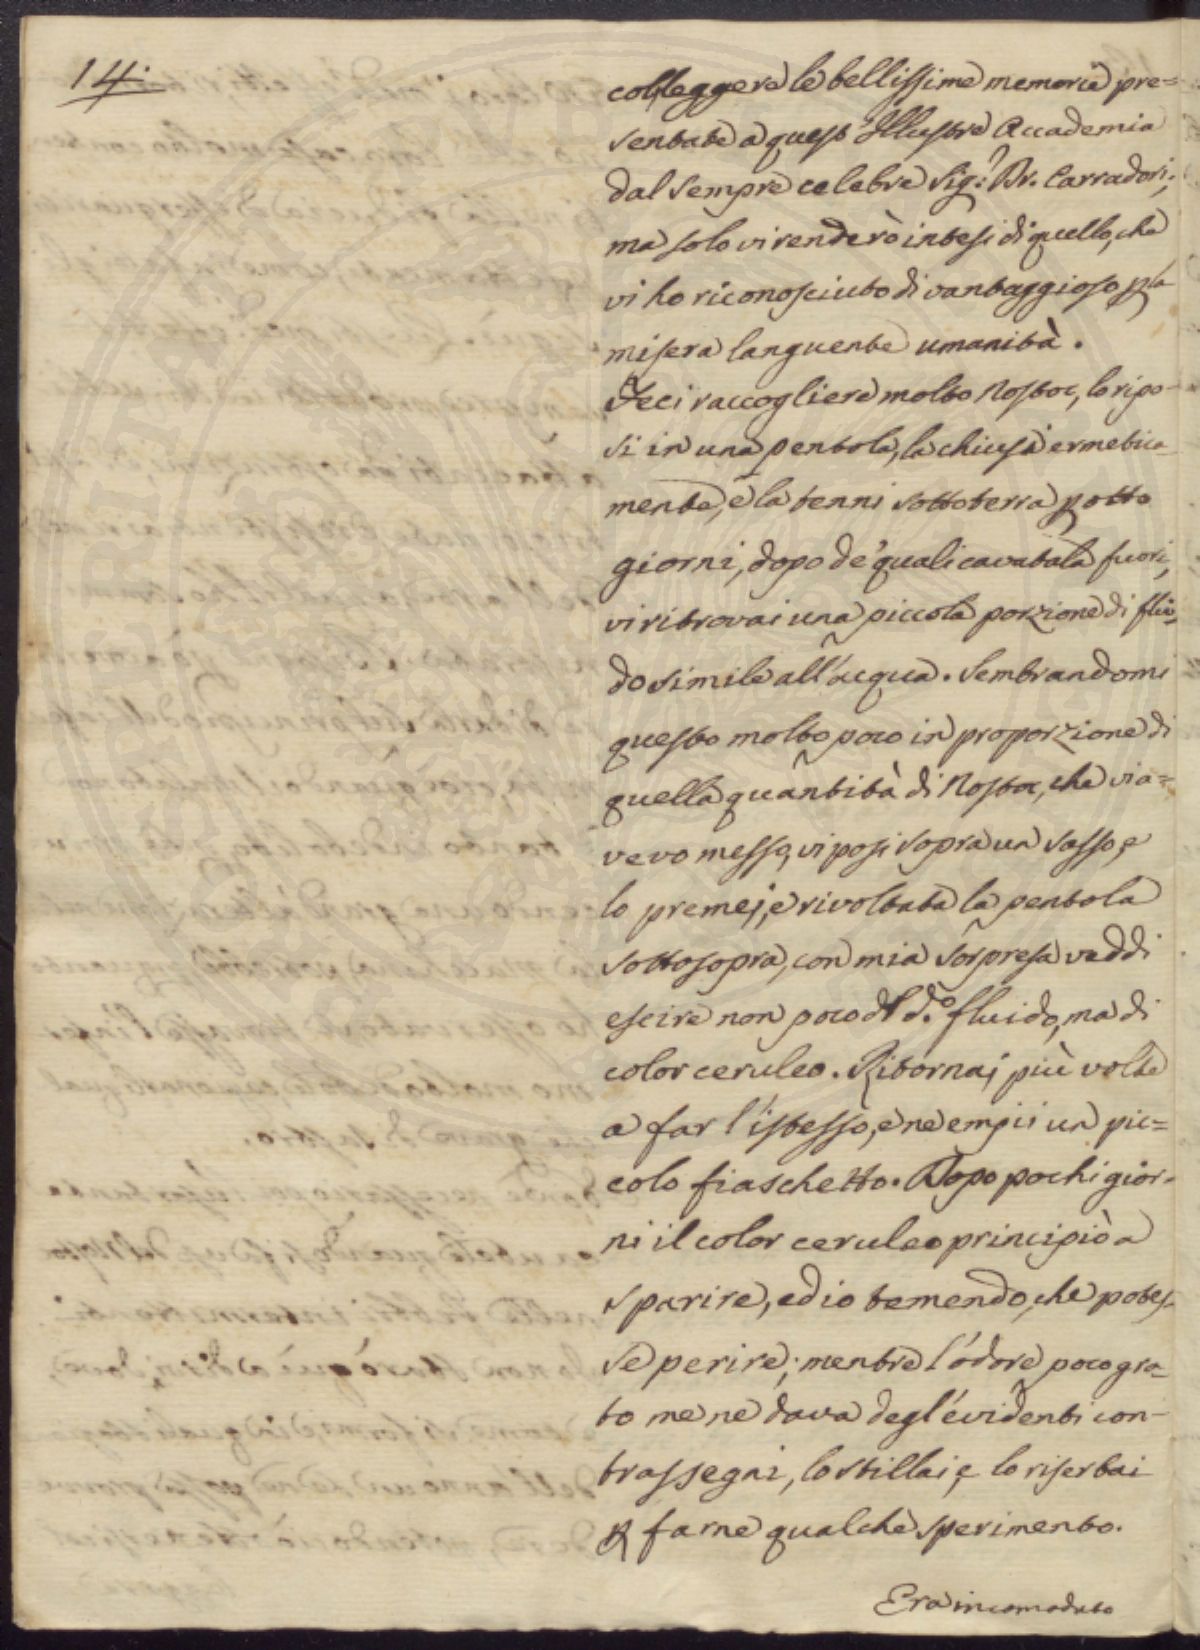 14.
col leggere le bellissime memorie pre=
sentate a quest' Illustre Accademia
dal sempre celebre Sig: Dr. Carradori;
ma solo vi renderò intesi di quello, che
vi ho riconosciuto di vantaggioso p la
misera languente umanità.
Feci raccogliere molto Nostoc, lo ripo-
si in una pentola, la chiusi ermetica
mente, e la tenni sottoterra p otto
giorni, dopo de' quali cavatala fuori,
vi ritrovai una piccola porzione di flui-
do simile all'acqua. Sembrandomi
questo molto poco in proporzione di
quella quantità di Nostoc, che vi a=
vevo messo, vi posi sopra un sasso, e
lo premei, e rivoltata la pentola
sottosopra, con mia sorpresa veddi
escire non poco dl do. fluido, ma di
color ceruleo. Ritornai più volte
a far l'istesso, e ne empii un pic=
colo fiaschetto. Dopo pochi gior-
ni il color ceruleo principiò a
sparire, ed io temendo, che potes-
se perire; mentre l'odore poco gra-
to me ne dava degl'evidenti con-
trassegni, lo stillai, e lo riserbai
p farne qualche sperimento.
Era incomodato